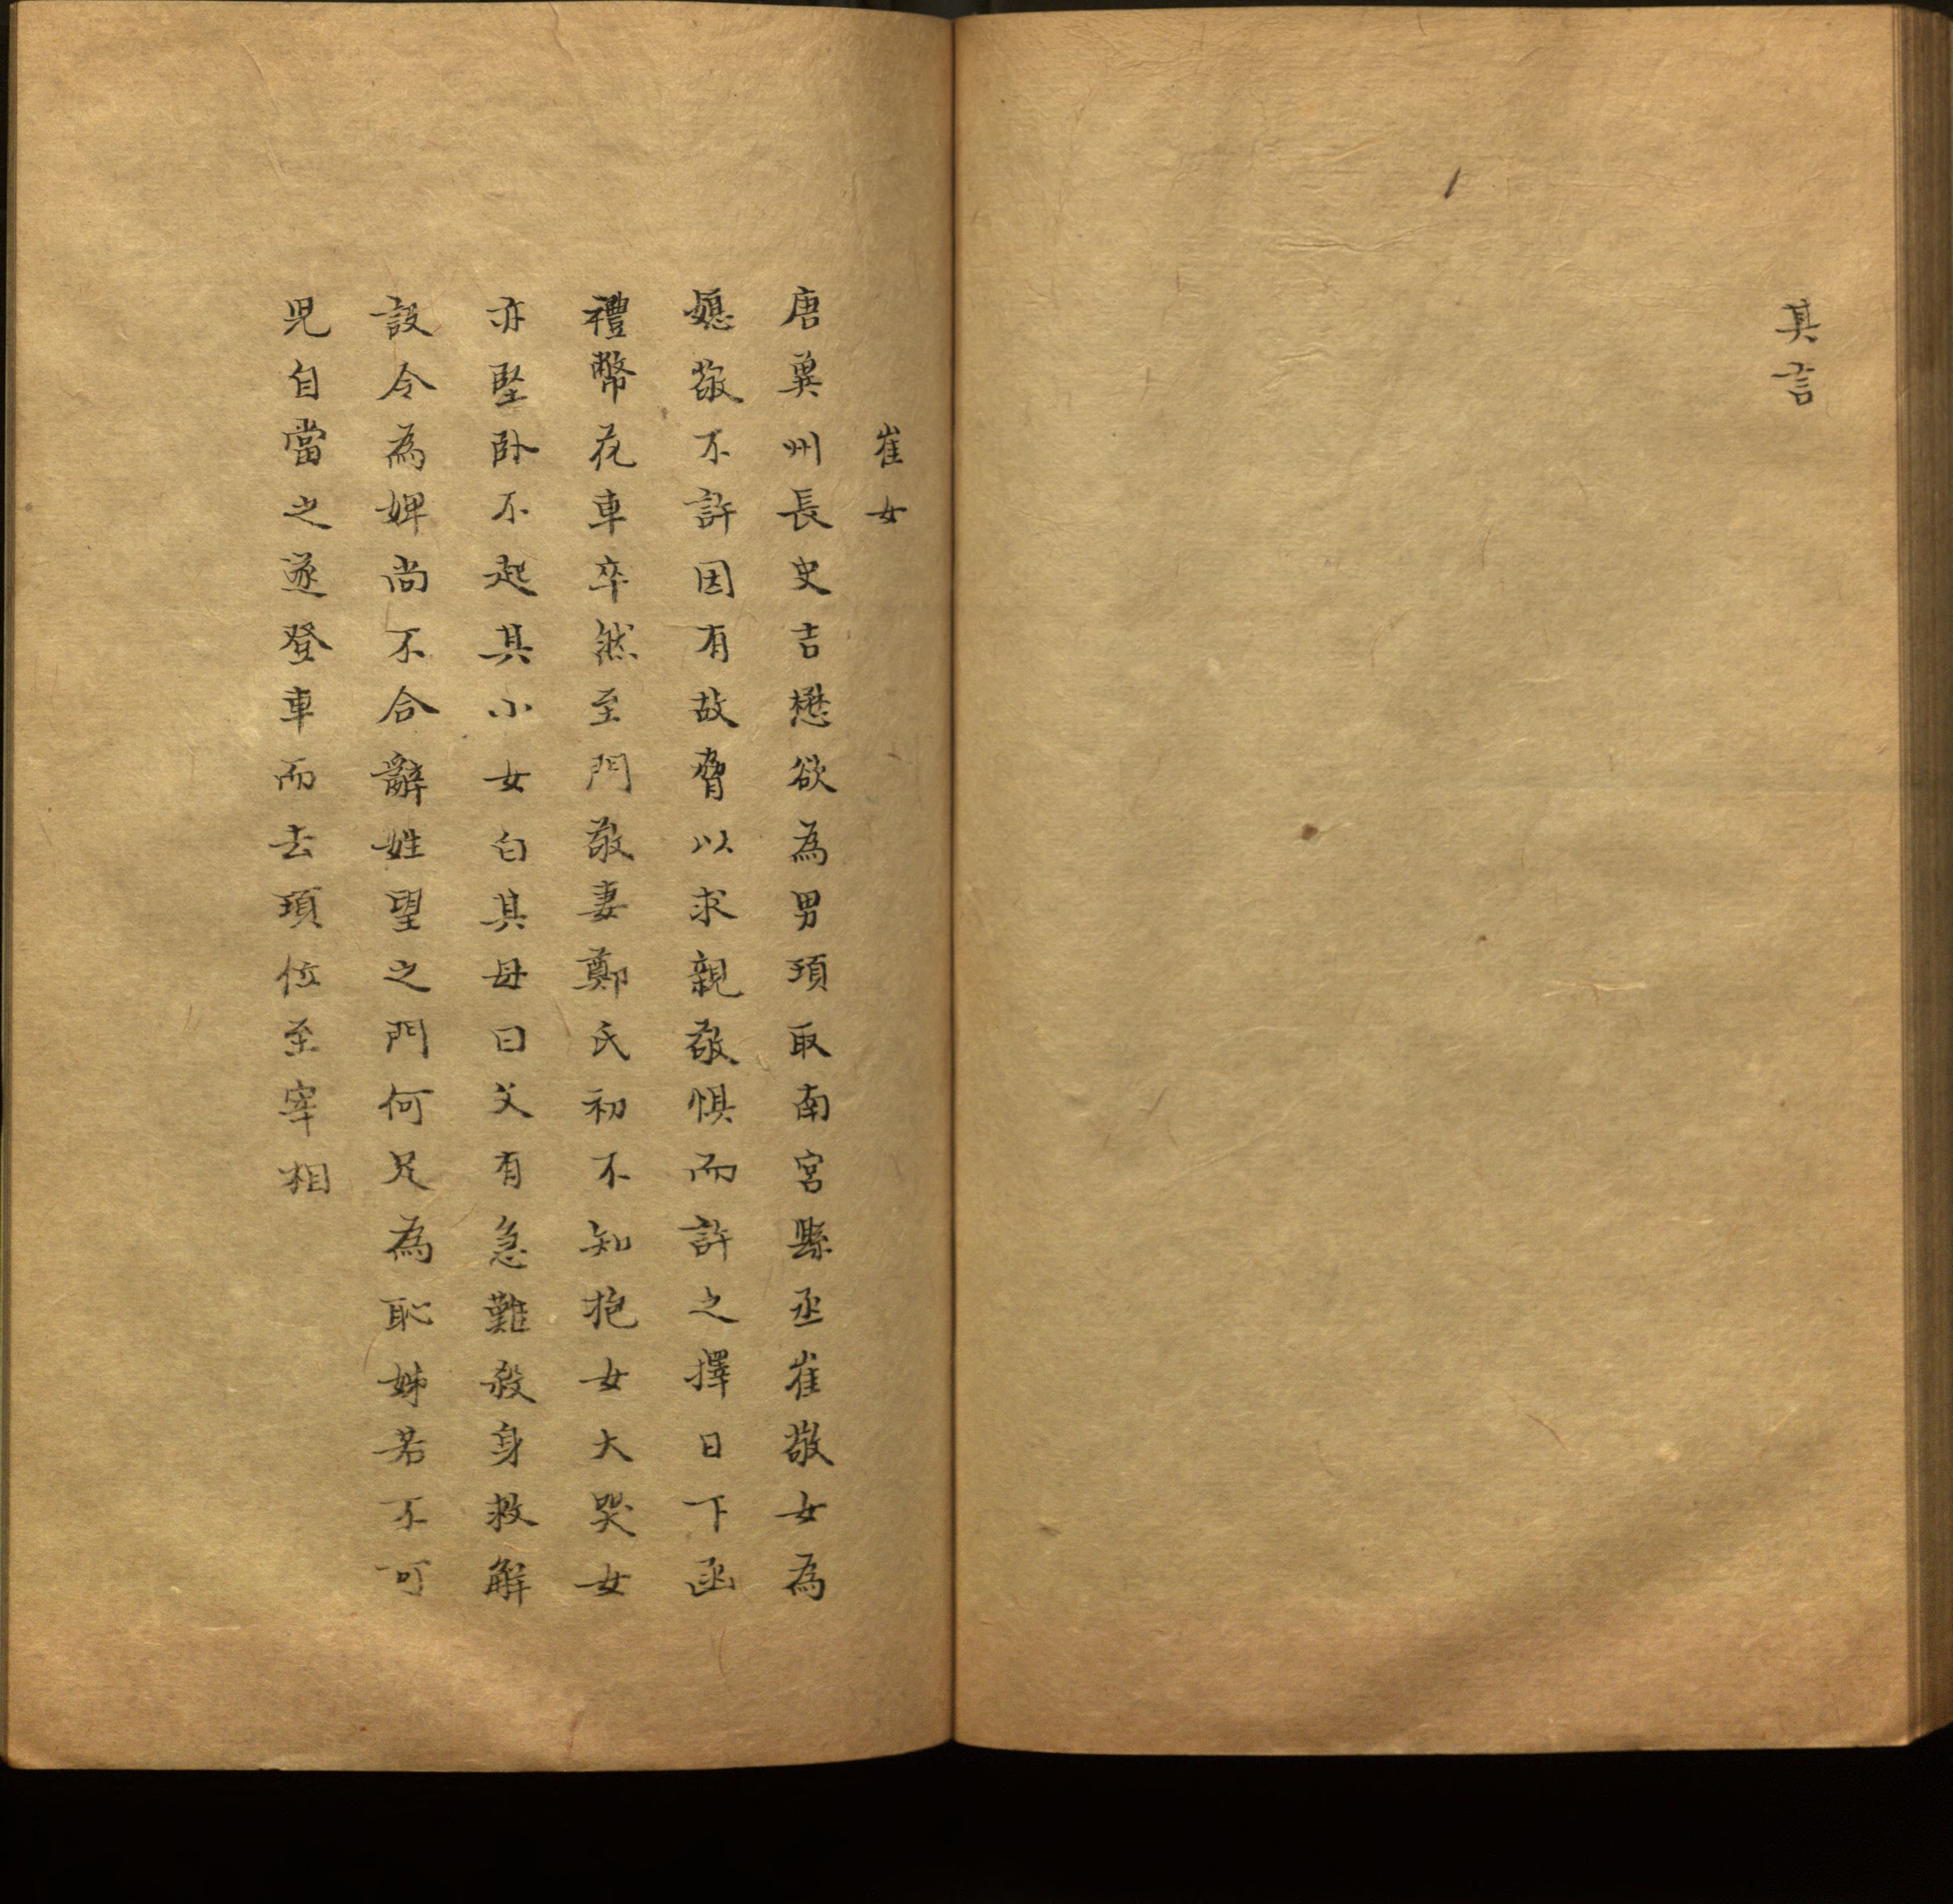 其言
崔女
唐兾州長史吉懋欲為男頊取南宮縣丞崔敬女為
媳敬不許因有故脅以求親敬惧而許之擇日下函
禮幣花車卒然至門敬妻鄭氏初不知抱女大哭女
亦堅卧不起其小女白其母曰父有急難殺身救解
設令為婢尚不合辭姓望之門何足為恥姊若不可
児自當之遂登車而去頊位至宰相